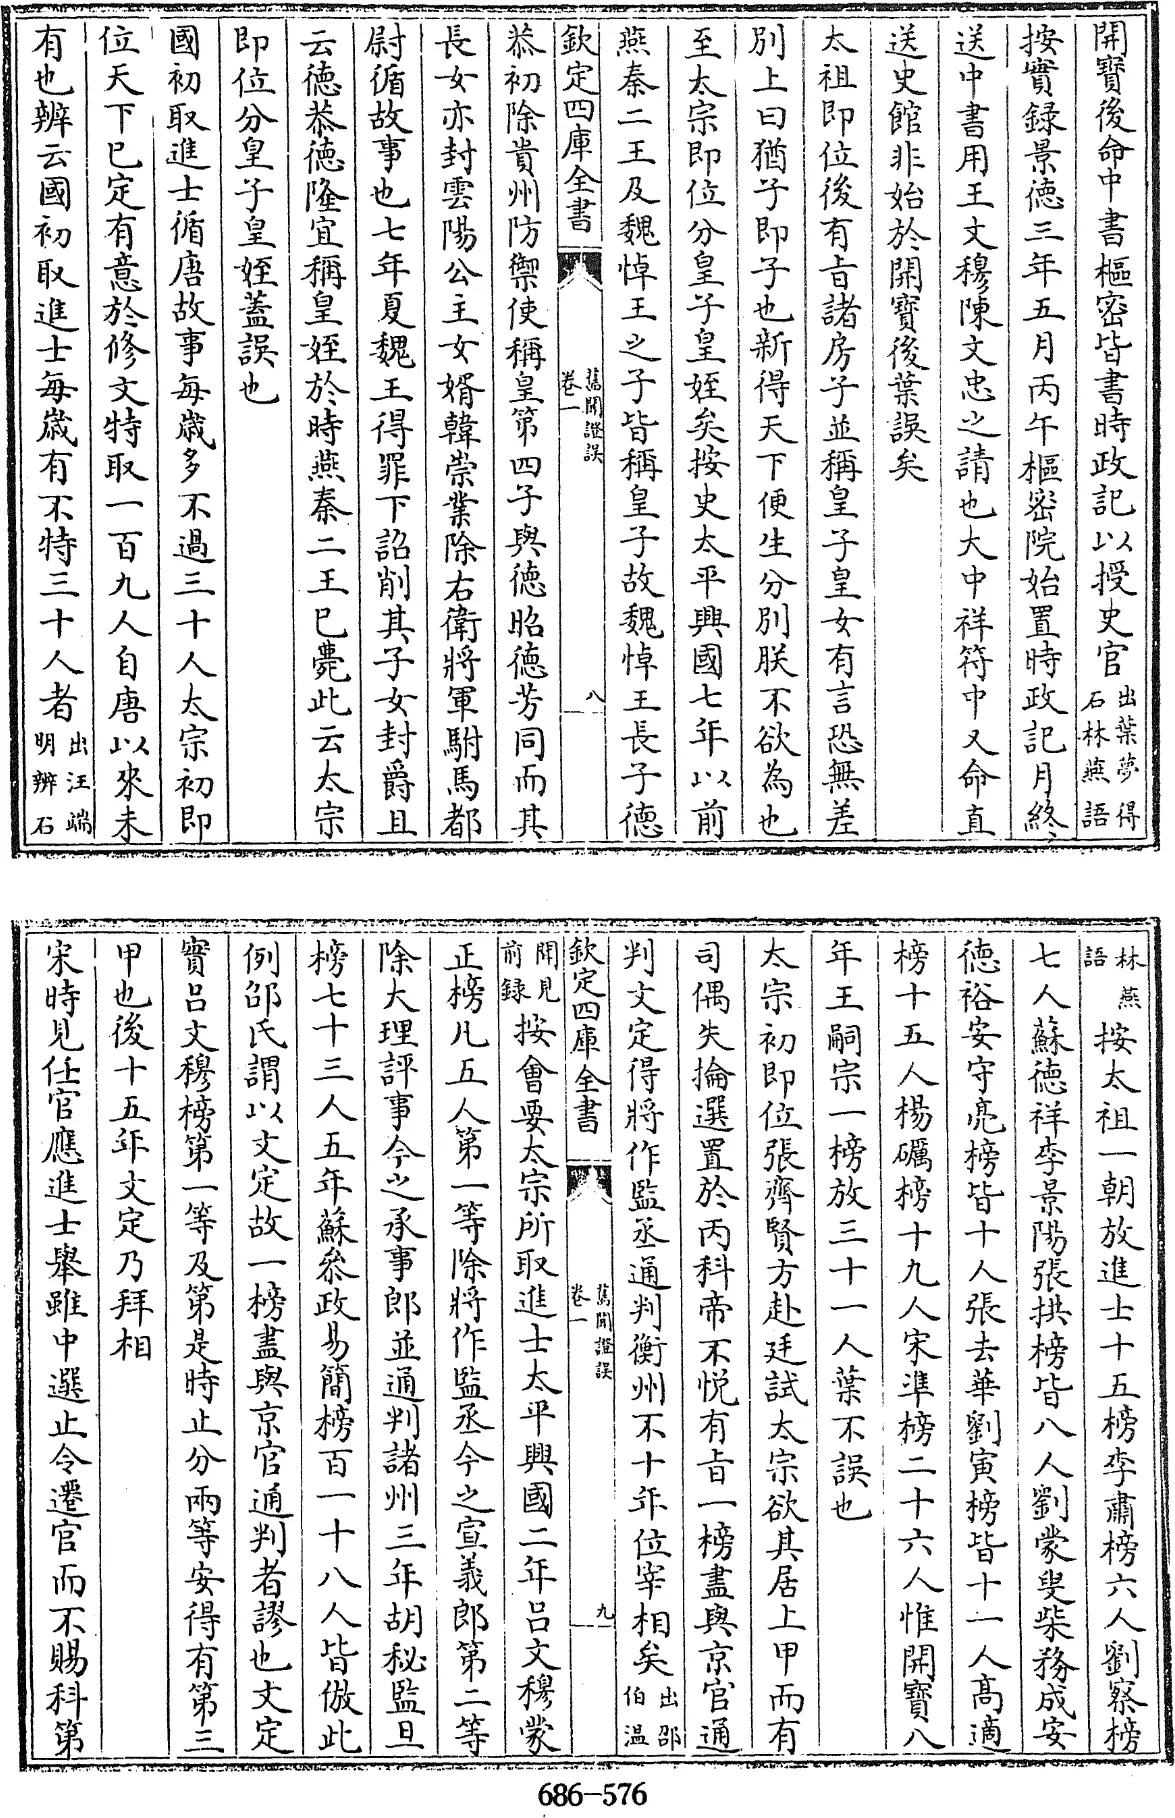 開寶後命中書樞密皆書時政記以授史官出葉夢得石林燕語
按實録景德三年五月丙午樞密院始置時政記月終
送中書用王文穆陳文忠之請也大中祥符中又命直
送史館非始於開寶後葉誤矣
太祖即位後有㫖諸房子並稱皇子皇女有言恐無差
別上曰猶子即子也新得天下便生分別朕不欲為也
至太宗即位分皇子皇姪矣按史太平興國七年以前
燕秦二王及魏悼王之子皆稱皇子故魏悼王長子德
欽定四庫全書 舊聞證誤 卷一 八
恭初除貴州防禦使稱皇第四子與德昭德芳同而其
長女亦封雲陽公主女婿韓崇業除右衛將軍駙馬都
尉循故事也七年夏魏王得罪下詔削其子女封爵且
云德恭德隆宜稱皇姪於時燕秦二王已薨此云太宗
即位分皇子皇姪蓋誤也
國初取進士循唐故事每歳多不過三十人太宗初即
位天下已定有意於修文特取一百九人自唐以來未
有也辨云國初取進士每歳有不特三十人者出汪端明辨石
林燕語按太祖一朝放進士十五榜李肅榜六人劉察榜
七人蘇德祥李景陽張拱榜皆八人劉蒙叟柴務成安
德裕安守亮榜皆十人張去華劉寅榜皆十一人高適
榜十五人楊礪榜十九人宋準榜二十六人惟開寶八
年王嗣宗一榜放三十一人葉不誤也
太宗初即位張齊賢方赴廷試太宗欲其居上甲而有
司偶失掄選置於丙科帝不悅有㫖一榜盡與京官通
判文定得將作監丞通判衡州不十年位宰相矣出邵伯温
欽定四庫全書 舊聞證誤 卷一 九
聞見前録按會要太宗所取進士太平興國二年吕文穆蒙
正榜凡五人第一等除將作監丞今之宣義郎第二等
除大理評事今之承事郎並通判諸州三年胡秘監旦
榜七十三人五年蘇叅政易簡榜百一十八人皆倣此
例邵氏謂以文定故一榜盡與京官通判者謬也文定
實吕文穆榜第一等及第是時止分兩等安得有第三
甲也後十五年文定乃拜相
宋時見任官應進士舉雖中選止令遷官而不賜科第
686-576